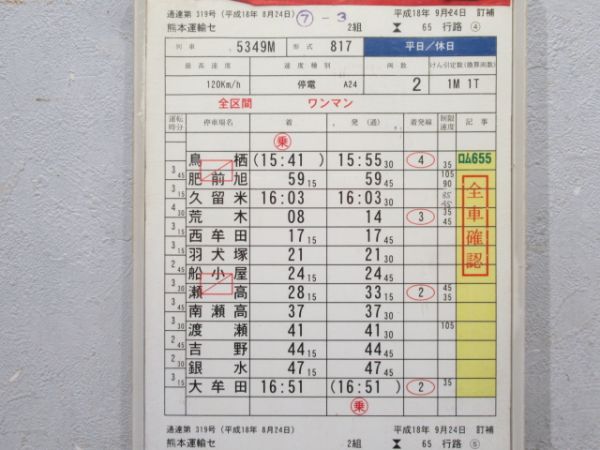 通達第 319号 (平成18年 8月24日) ⑦ - 3 平成18年 9月24日 訂補
熊本運輸セ 2組 65 行路 ④
列車 5349M 形式 817 平日／休日
最高速度 速度種別 両数 けん引定数(換算両数)
120Km/h 停電 A24 2 1M 1T
全区間 ワンマン
運転時分 停車場名 着 発 (通) 着発線 制限速度 記事
乗
鳥栖 (15:41 ) 15:55 30 4 35 ロム655
3 45 肥前旭 59 15 59 45 105 90
3 45 久留米 16:03 16:03 30
4 30 荒木 08 14 3 35 45
3 15 西牟田 17 15 17 45
3 15 羽犬塚 21 21 30
3 15 船小屋 24 15 24 45
3 30 瀬高 28 15 33 15 2 45 35
3 45 南瀬高 37 37 30
3 30 渡瀬 41 41 30 105
2 45 吉野 44 15 44 45
2 30 銀水 47 15 47 45
3 15 大牟田 16:51 (16:51 ) 2 35
全車確認
乗
通達第 319号 (平成18年 8月24日) 平成18年 9月24日 訂補
熊本運輸セ 2組 65 行路 ⑤